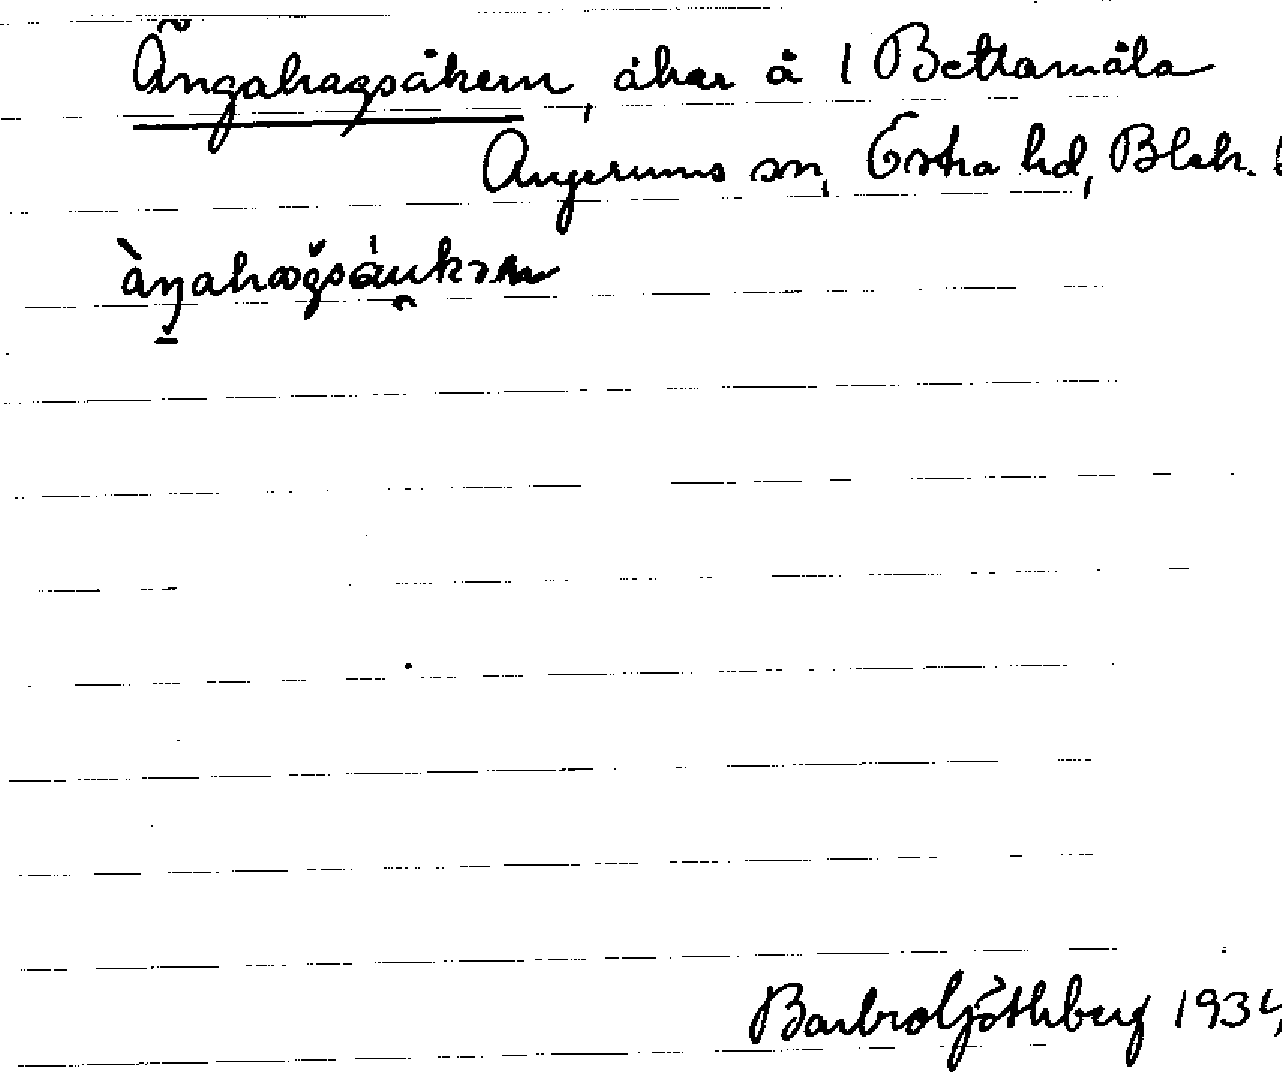 Ängahagsåkern, åker å 1 Bettamåla
Augerums sn, Östra hd, Blek.
àŋahagsåukərn
Barbro Göthberg 1934